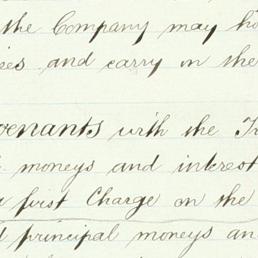 the Company may ho
ees and carry on the
venants with the Tr
moneys and interest
a first Charge on the
d principal moneys an